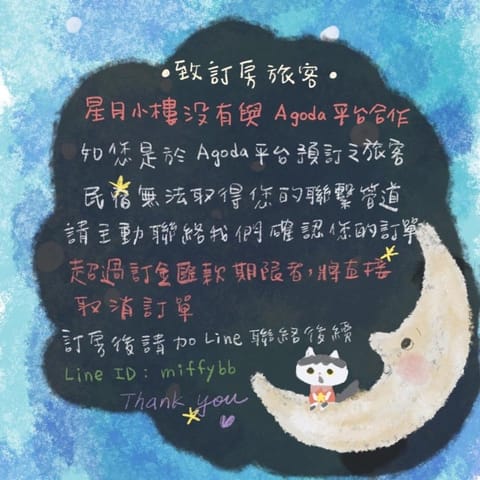 •致訂房旅客•
星月小樓没有與 Agoda平台合作
如您是於 Agoda平台預訂之旅客
民宿無法取得您的聯繫管道
請主動聯絡我們確認您的訂單
超過訂金匯款期限者,將直接
取消訂單
訂房後請加Line聯絡後續
Line ID: miffybb
Thank you